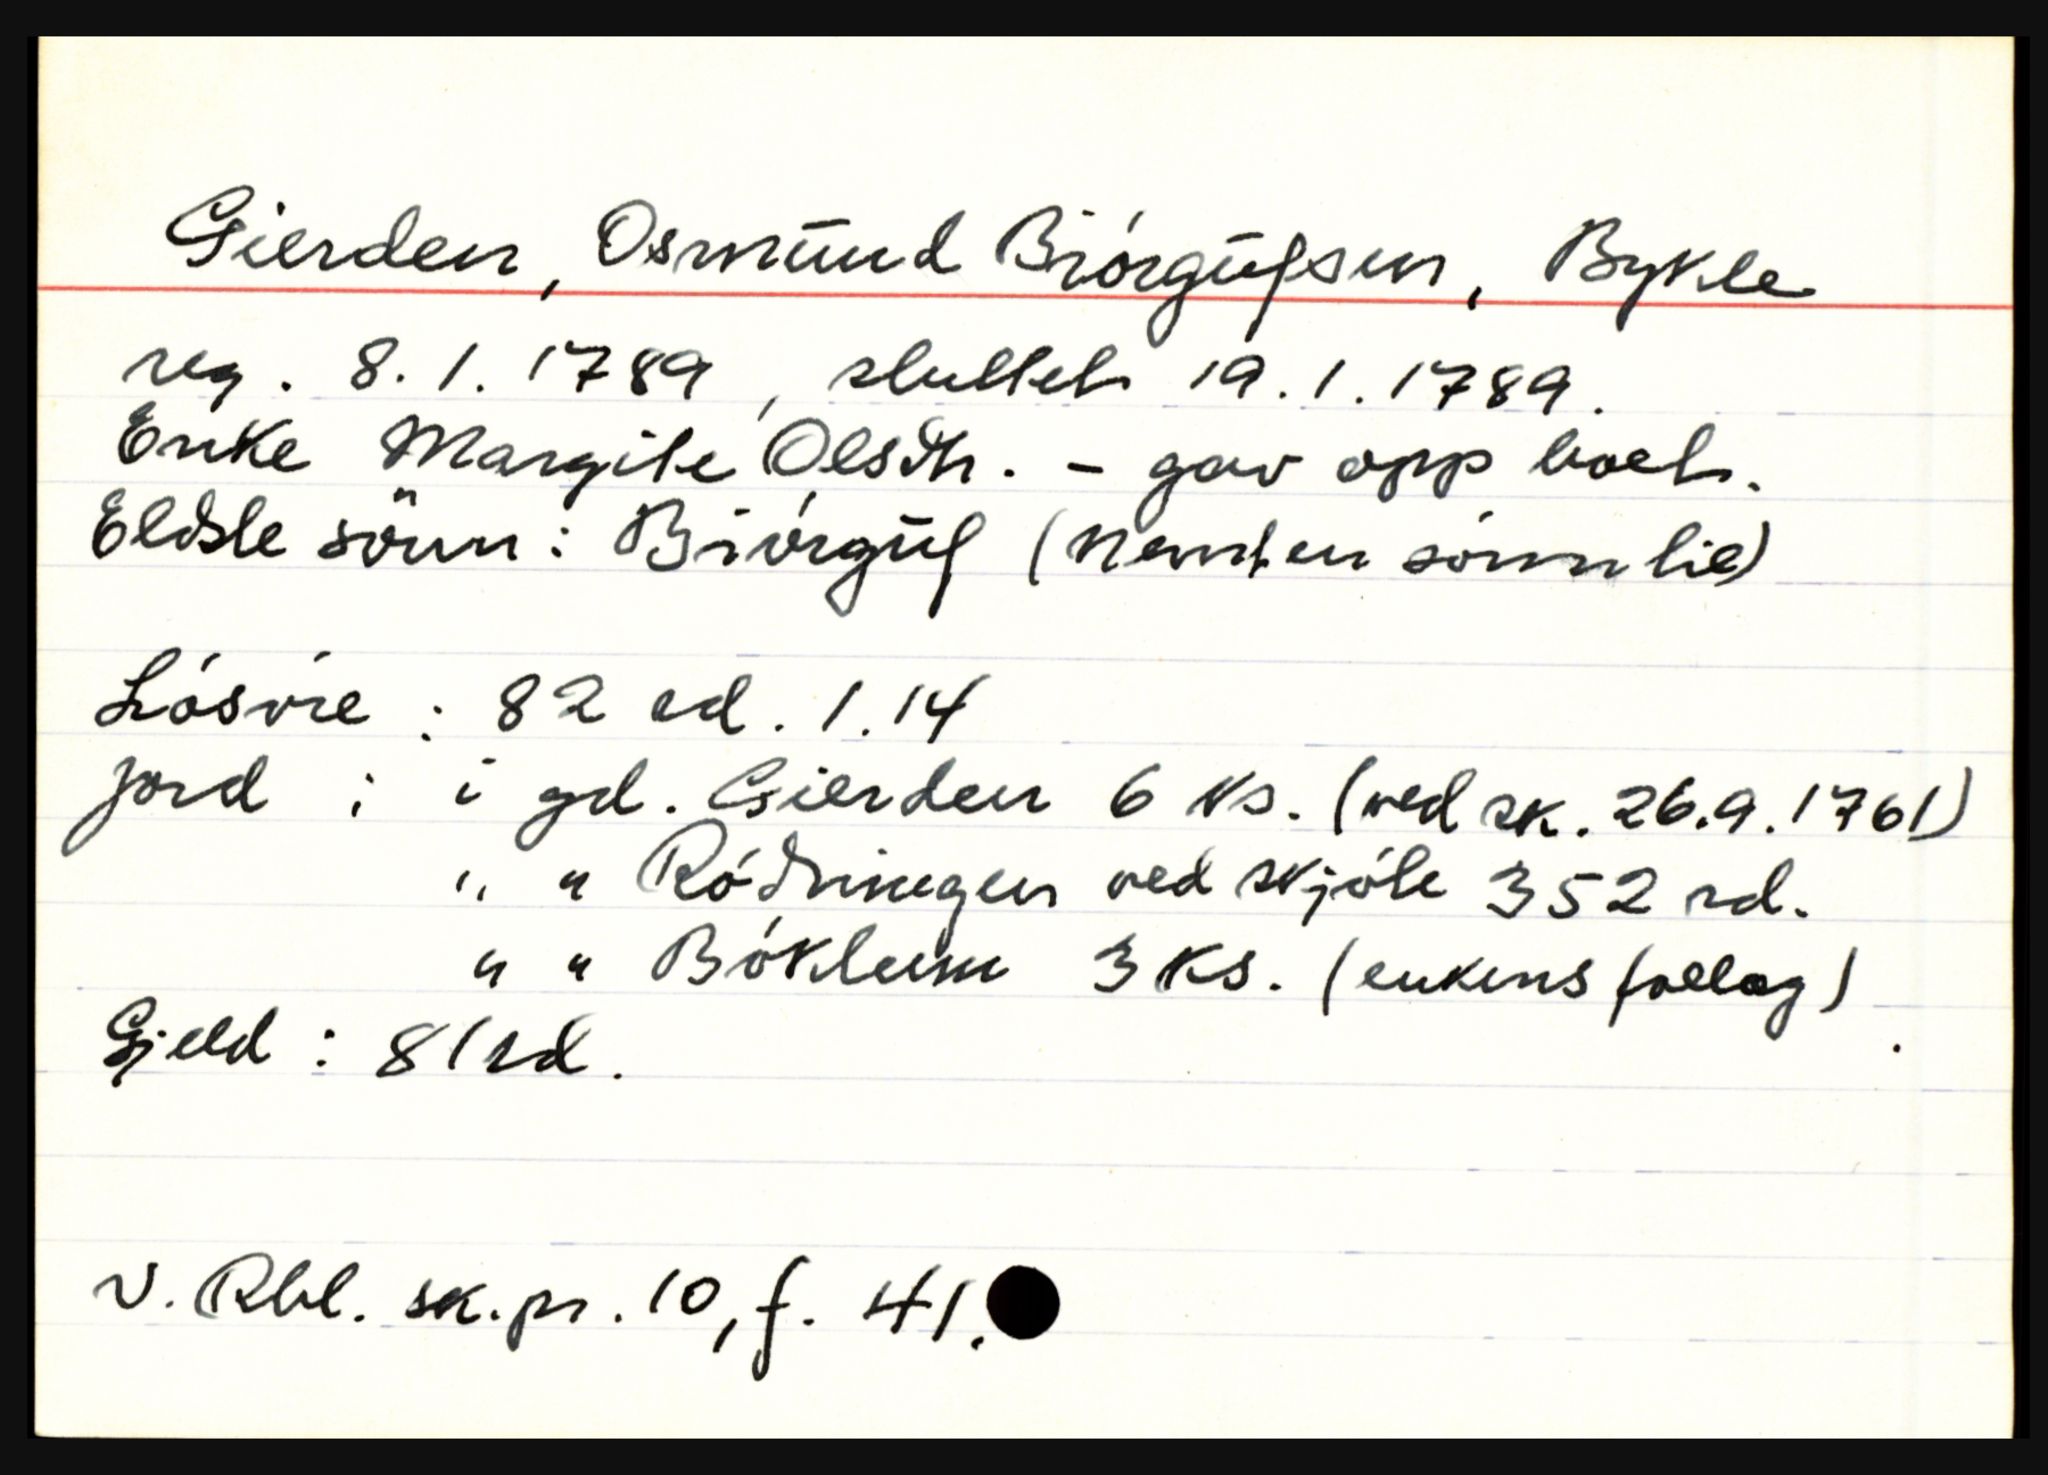 Gierden, Osmund Biórgufsen, Bykle
reg. 8.1.1789, sluttet 19.1.1789.
Enke Margite Olsdtr. - gav opp boet.
Eldste sönn: Biórguf (Nemt en sónn til)
Lósóre: 82 rd. 1.14
Jord: i gd. Gierden 6 ks. (ved sk. 26.9.1761)
" " Ródningen ved skjóte 352 rd.
" " Bóktun 3 ks. (enkens follog).
Gjeld: 81 rd.
V. Rbl. sk.pr. 10, f. 41.